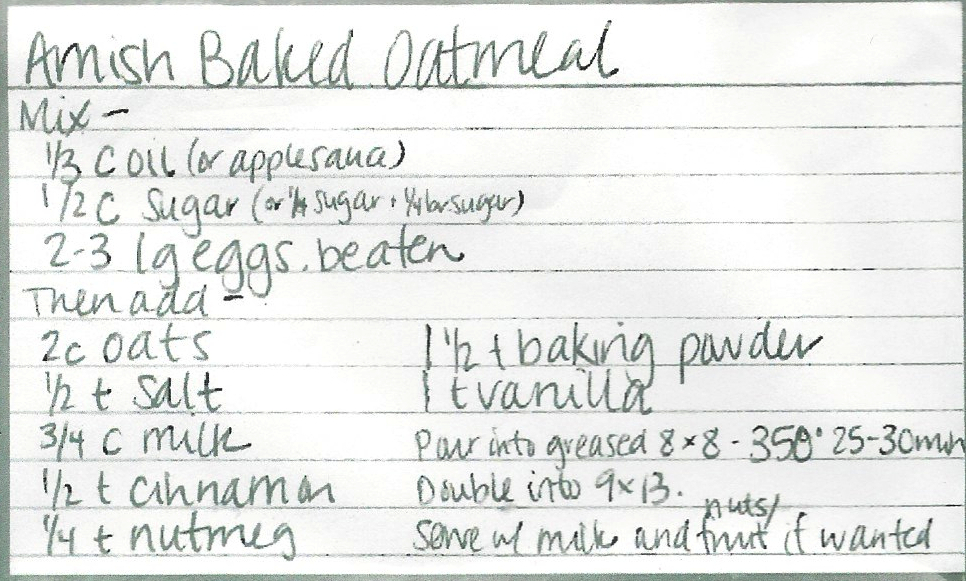 Amish Baked Oatmeal
Mix -
1/3 c oil (or applesaua)
1/2 c sugar (or 1/4 sugar + 1/4 br sugar)
2-3 lg eggs. beaten
Then add -
2c oats
1/2 t salt
3/4 c milk
1/2 t cinnamon
1/4 t nutmeg
1 1/2 t baking powder
1 t vanilla
Pour into greased 8x8 - 350° 25-30 min
Double into 9x13.
Serve w/ milk and nuts/fruit if wanted